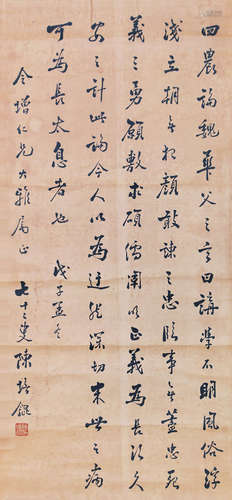 四農論魏華父之言曰講學不明風俗浮
淺立朝無犯顏敢諫之忠臨事無藎忠死
義之勇願敷求碩儒闡明正義為長治久
安之計此論今人以為迂然深切末世之病
可為長太息者也 戊子孟冬
令增仁兄大雅屬正 七十二叟陳培錕